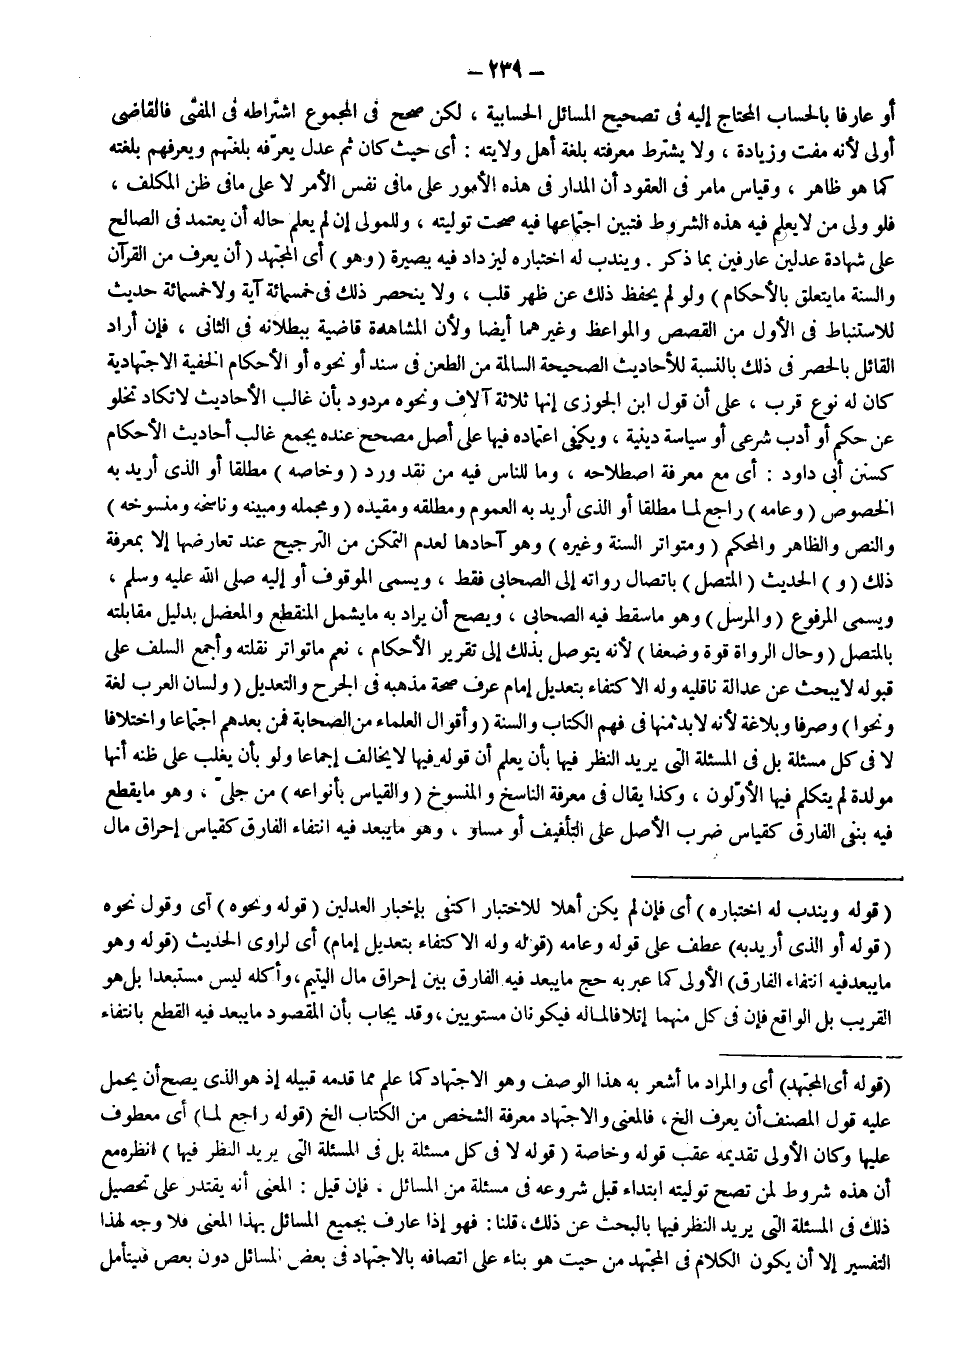 – ٢٣٩ –
أو عارفا بالحساب المحتاج إليه فى تصحيح المسائل الحسابية ، لكن صحح فى المجموع اشتراطه فى المفتى فالقاضى
أولى لأنه مفت وزيادة ، ولا يشترط معرفته بلغة أهل ولايته : أى حيث كان ثم عدل يعرّفه بلغتهم ويعرفهم بلغته
كما هو ظاهر ، وقياس مامر فى العقود أن المدار فى هذه الأمور على مافى نفس الأمر لا على مافى ظن المكلف ،
فلو ولى من لايعلم فيه هذه الشروط فتبين اجتماعها فيه صحت توليته ، وللمولى إن لم يعلم حاله أن يعتمد فى الصالح
على شهادة عدلين عارفين بما ذكر . ويندب له اختباره ليزداد فيه بصيرة ( وهو ) أى المجتهد ( أن يعرف من القرآن
والسنة مايتعلق بالأحكام ) ولو لم يحفظ ذلك عن ظهر قلب ، ولا ينحصر ذلك فى خمسمائة آية ولاخمسمائة حديث
للاستنباط فى الأول من القصص والمواعظ وغيرهما أيضا ولأن المشاهدة قاضية ببطلانه فى الثانى ، فإن أراد
القائل بالحصر فى ذلك بالنسبة للأحاديث الصحيحة السالمة من الطعن فى سند أو نحوه أو الأحكام الخفية الاجتهادية
كان له نوع قرب ، على أن قول ابن الجوزى إنها ثلاثة آلاف ونحوه مردود بأن غالب الأحاديث لاتكاد تخلو
عن حكم أو أدب شرعى أو سياسة دينية ، ويكفى اعتماده فيها على أصل مصحح عنده يجمع غالب أحاديث الأحكام
كسنن أبى داود : أى مع معرفة اصطلاحه ، وما للناس فيه من نقد ورد ( وخاصه ) مطلقا أو الذى أريد به
الخصوص ( وعامه ) راجع لما مطلقا أو الذى أريد به العموم ومطلقه ومقيده ( ومجمله ومبينه وناسخه ومنسوخه )
والنص والظاهر والمحكم ( ومتواتر السنة وغيره ) وهو آحادها لعدم التمكن من الترجيح عند تعارضها إلا بمعرفة
ذلك ( و ) الحديث ( المتصل ) باتصال رواته إلى الصحابى فقط ، ويسمى الموقوف أو إليه صلى الله عليه وسلم ،
ويسمى المرفوع ( والمرسل ) وهو ماسقط فيه الصحابى ، ويصح أن يراد به مايشمل المنقطع والمعضل بدليل مقابلته
بالمتصل ( وحال الرواة قوة وضعفا ) لأنه يتوصل بذلك إلى تقرير الأحكام ، نعم ماتواتر نقلته وأجمع السلف على
قبوله لايبحث عن عدالة ناقليه وله الاكتفاء بتعديل إمام عرف صحة مذهبه فى الجرح والتعديل ( ولسان العرب لغة
ونحوا ) وصرفا وبلاغة لأنه لابد منها فى فهم الكتاب والسنة ( وأقوال العلماء من الصحابة فمن بعدهم اجتماعا واختلافا
لا فى كل مسئلة بل فى المسئلة التى يريد النظر فيها بأن يعلم أن قوله فيها لايخالف إجماعا ولو بأن يغلب على ظنه أنها
مولدة لم يتكلم فيها الأوّلون ، وكذا يقال فى معرفة الناسخ والمنسوخ ( والقياس بأنواعه ) من جلىّ ، وهو مايقطع
فيه بنفى الفارق كقياس ضرب الأصل على التأفيف أو مساو ، وهو مايبعد فيه انتفاء الفارق كقياس إحراق مال
( قوله ويندب له اختباره ) أى فإن لم يكن أهلا للاختبار اكتفى بإخبار العدلين ( قوله ونحوه ) أى وقول نحوه
( قوله أو الذى أريدبه) عطف على قوله وعامه (قوله وله الاكتفاء بتعديل إمام) أى لراوى الحديث (قوله وهو
مايبعدفيه انتفاء الفارق) الأولى كما عبر به حج مايبعد فيه الفارق بين إحراق مال اليتيم،وأكله ليس مستبعدا بل هو
القريب بل الواقع فإن فى كل منهما إتلافالماله فيكونان مستويين،وقد يجاب بأن المقصود مايبعد فيه القطع بانتفاء
(قوله أى المجتهد) أى والمراد ما أشعر به هذا الوصف وهو الاجتهاد كما علم مما قدمه قبيله إذ هوالذى يصح أن يحمل
عليه قول المصنف أن يعرف الخ، فالمعنى والاجتهاد معرفة الشخص من الكتاب الخ (قوله راجع لما) أى معطوف
عليها وكان الأولى تقديمه عقب قوله وخاصة ( قوله لا فى كل مسئلة بل فى المسئلة التى يريد النظر فيها ) انظره مع
أن هذه شروط لمن تصح توليته ابتداء قبل شروعه فى مسئلة من المسائل . فإن قيل : المعنى أنه يقتدر على تحصيل
ذلك فى المسئلة التى يريد النظر فيها بالبحث عن ذلك،قلنا: فهو إذا عارف بجميع المسائل بهذا المعنى فلا وجه لهذا
التفسير إلا أن يكون الكلام فى المجتهد من حيث هو بناء على اتصافه بالاجتهاد فى بعض المسائل دون بعض فليتأمل